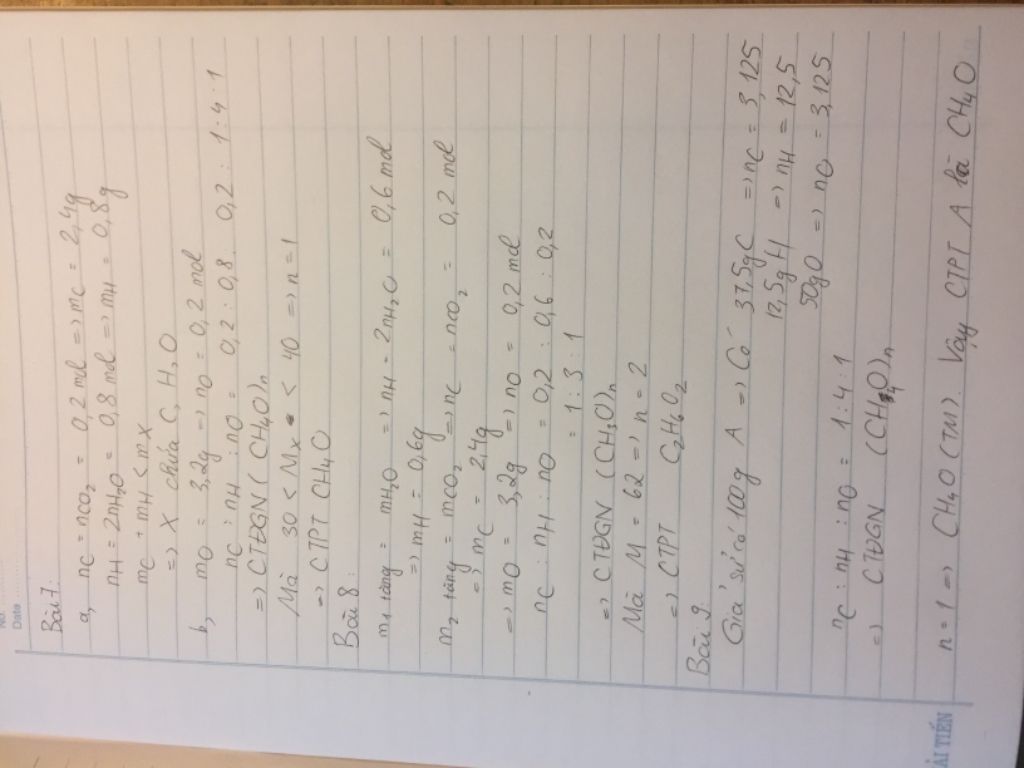 No.
Date
Bài 7:
a, nC = nCO2 = 0,2 mol => mC = 2,4g
nH = 2nH2O = 0,8 mol => mH = 0,8g
mC + mH < mX
=> X chứa C, H, O
b, mO = 3,2g => nO = 0,2 mol
nC : nH : nO = 0,2 : 0,8 : 0,2 : 1:4:1
=> CTĐGN (CH4O)n
Mà 30 < Mx < 40 => n=1
=> CTPT CH4O
Bài 8:
m1 tăng = mH2O => nH = 2nH2O = 0,6 mol
=> mH = 0,6g
m2 tăng = mCO2 => nC = nCO2 = 0,2 mol
=> mC = 2,4g
=> mO = 3,2g => nO = 0,2 mol
nC : nH : nO = 0,2 : 0,6 : 0,2
= 1 : 3 : 1
=> CTĐGN (CH3O)n
Mà M = 62 => n = 2
=> CTPT C2H6O2
Bài 9:
Giả sử có 100g A => Có 37,5gC => nC = 3,125
12,5gH => nH = 12,5
50gO => nO = 3,125
nC : nH : nO = 1:4:1
=> CTĐGN (CH4O)n
n=1 => CH4O (TM). Vậy CTPT A là CH4O
ẢI TIẾN